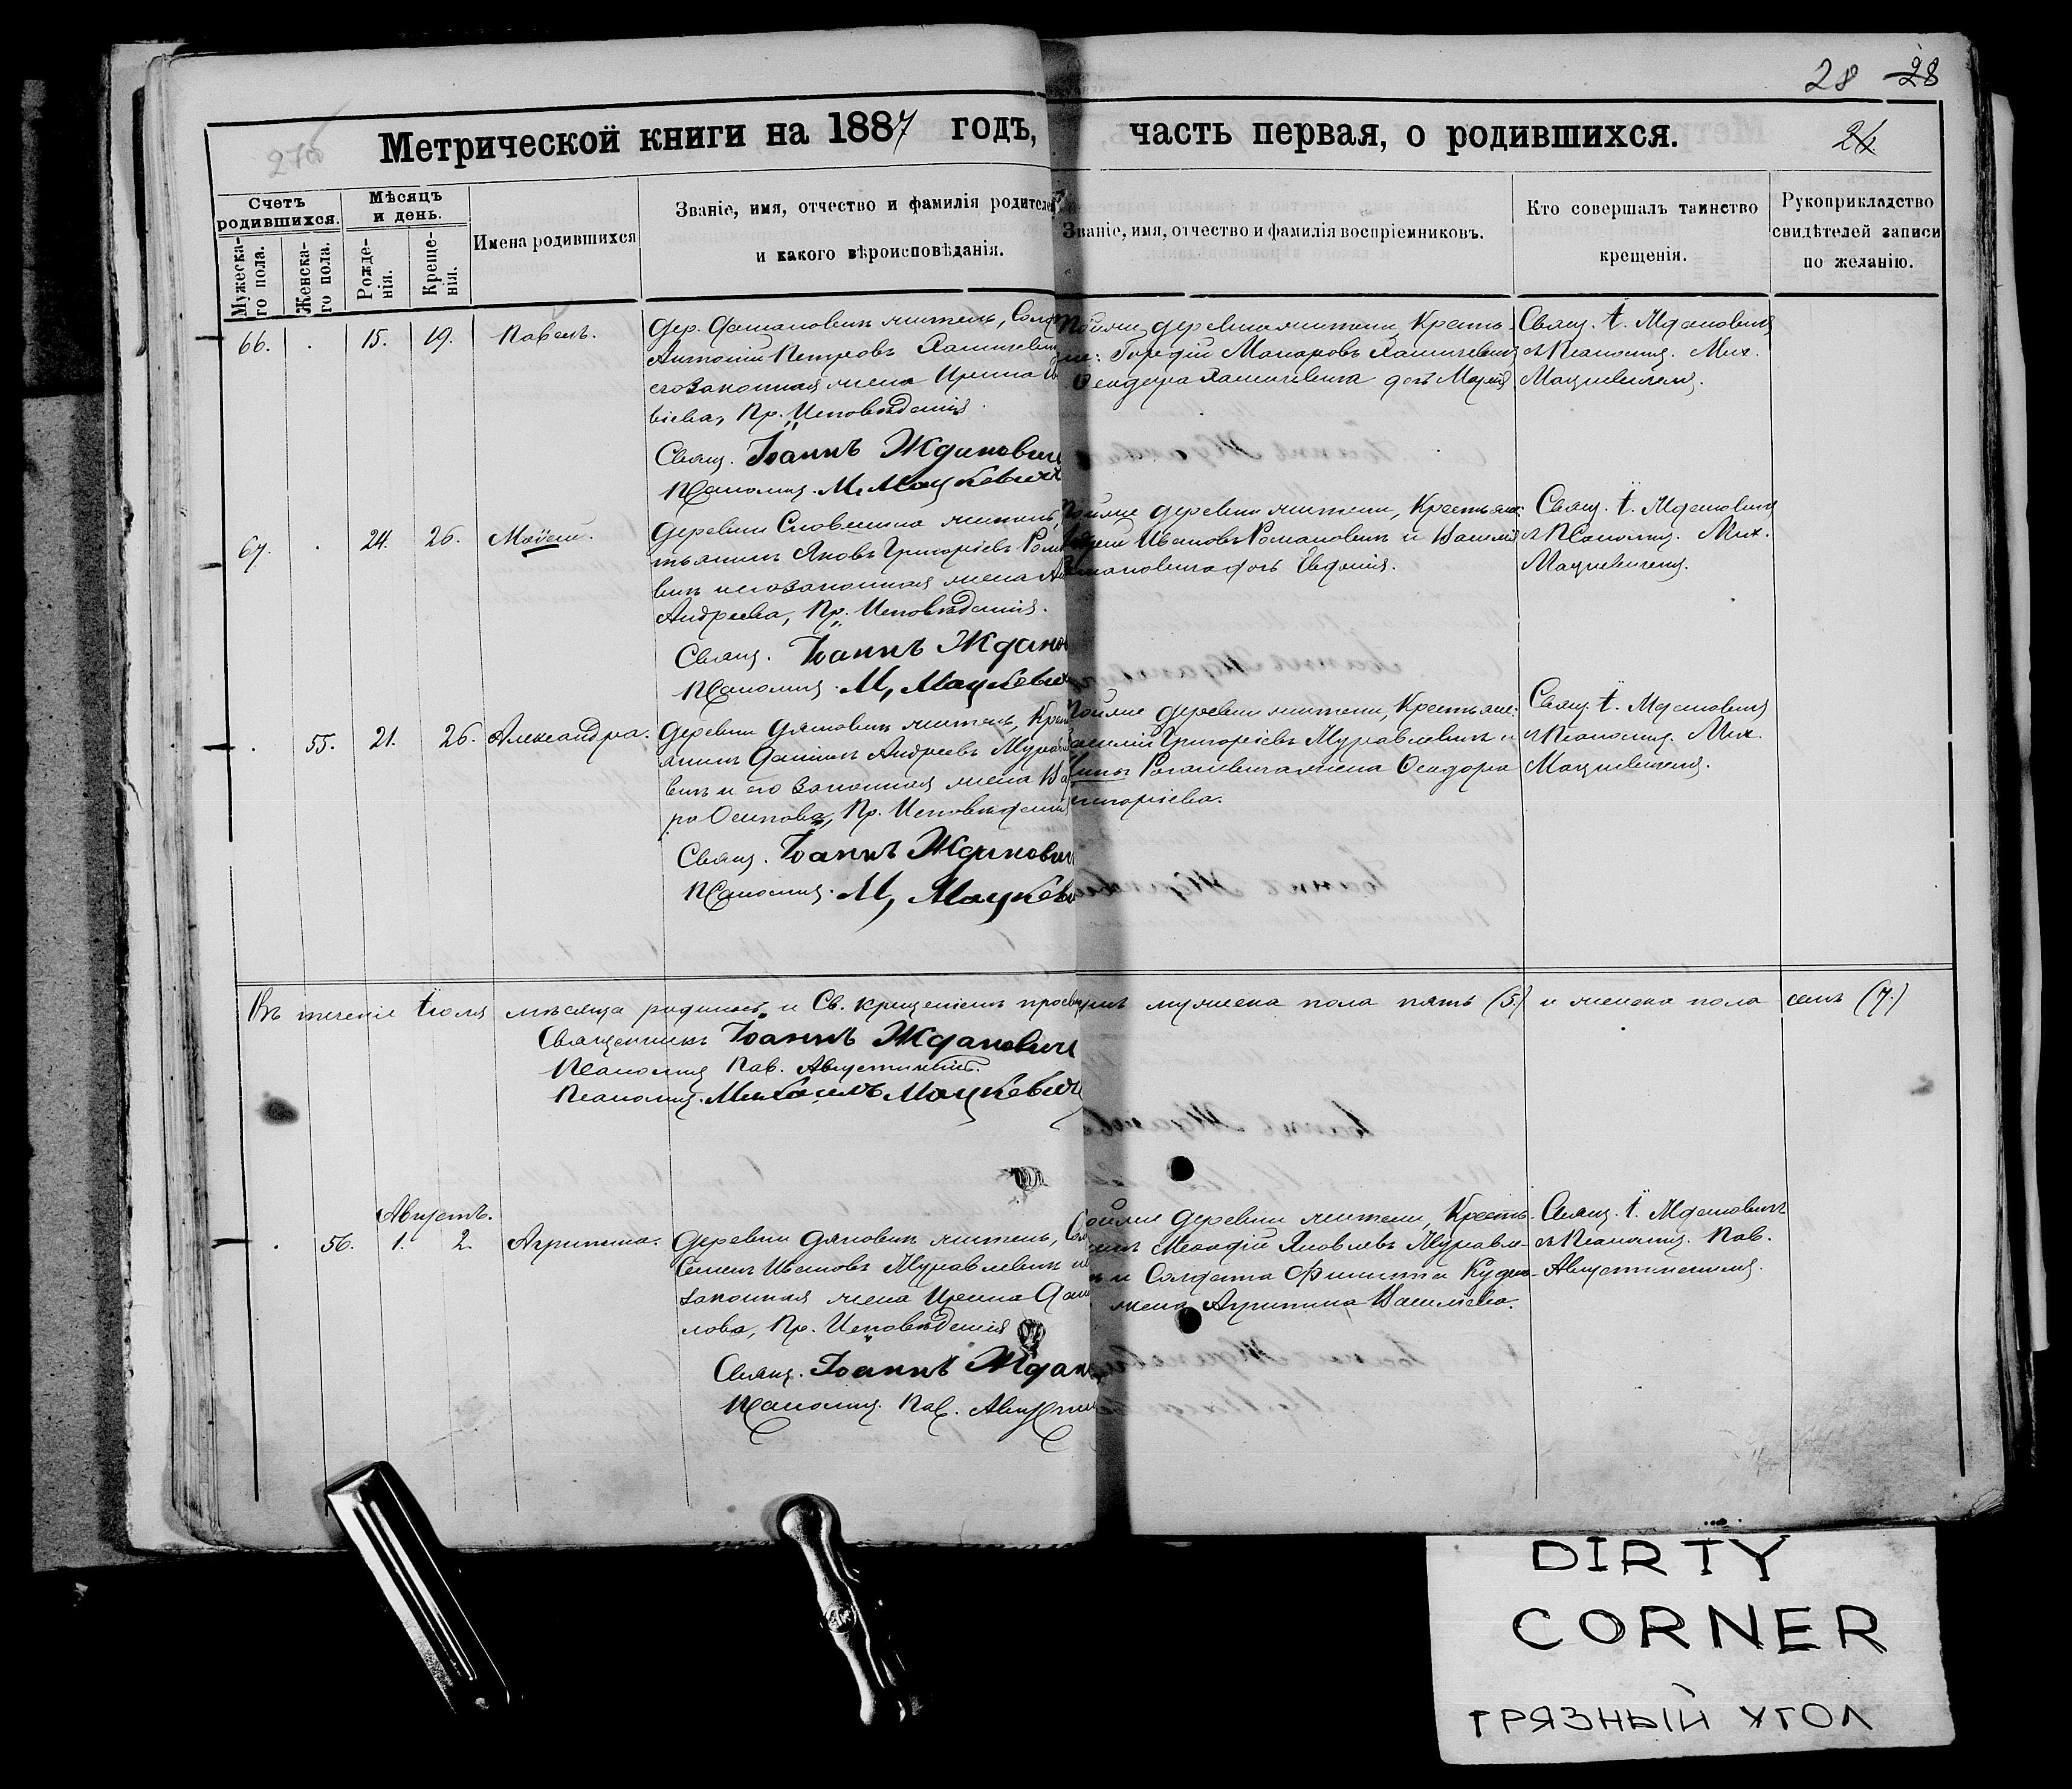 28 28
Метрической книги на 1887 годъ, часть первая, о родившихся.
26
Счетъ родившихся.
Мужеска-го пола.
Женска-го пола.
Мѣсяцъ и день.
Рожде-нія.
Креще-нія.
Имена родившихся
Званіе, имя, отчество и фамилія родителей
и какого вѣроисповѣданія.
Званіе, имя, отчество и фамилія воспріемниковъ.
Кто совершалъ таинство
крещенія.
Рукоприкладство
свидѣтелей записи
по желанію.
66. . 15. 19. Павелъ.
Дер. житель,
Антоній Петровъ
его законная жена Ирина
Пр. Исповѣданія.
Свящ. Іоаннъ Жданович
Псаломщ. М. Мацкевич
деревни жители, Кресть-
Макаровъ
Ѳеодора дочь Марія
Свящ. І. Ждановичъ
съ Псаломщ. Мих.
Мацкевичемъ.
67. . 24. 26. Моѵсей.
Деревни житель,
тьянинъ Яковъ Григоріевъ Рома
вичъ и его законная жена
Андреева, Пр. Исповѣданія.
Свящ. Іоаннъ Ждано
Псаломщ. М. Мацкевич
деревни жители, Крестьяне:
Ивановъ Романовичъ и Василія
мановича дочь Евфимія.
Свящ. І. Ждановичъ
съ Псаломщ. Мих.
Мацкевичемъ.
. 55. 21. 26. Александра.
Деревни Дяковичъ житель, Крест
янинъ Даніилъ Андреевъ Мурав
вичъ и его законная жена Ва
ра Осипова, Пр. Исповѣданія
Свящ. Іоаннъ Жданович
Псаломщ. М. Мацкеви
деревни жители, Крестьяне:
Григоріевъ Муравлевичъ и
жена Ѳеодора
григоріева.
Свящ. І. Ждановичъ
съ Псаломщ. Мих.
Мацкевичемъ.
Въ теченіе Іюля мѣсяца родилось и Св. крещеніемъ просвѣщ мужеска пола пять (5.) и женска пола семь (7.)
Священникъ Іоаннъ Жданович
Псаломщ Пав.
Псаломщ. Михаилъ Мацкевичъ
Августъ.
. 56. 1. 2. Агрипина.
Деревни Дяковичъ житель,
Семенъ Ивановъ Муравлевичъ и
законная жена Ирина Дани
лова, Пр. Исповѣданія
Свящ. Іоаннъ Ждан
Псаломщ. Пав.
деревни жители, Кресть-
Яковлевъ Муравле-
и Солдата Филиппа
жена Агрипина Васильева.
Свящ. І. Ждановичъ
съ Псаломщ. Пав.
DIRTY
CORNER
ГРЯЗНЫЙ УГОЛ